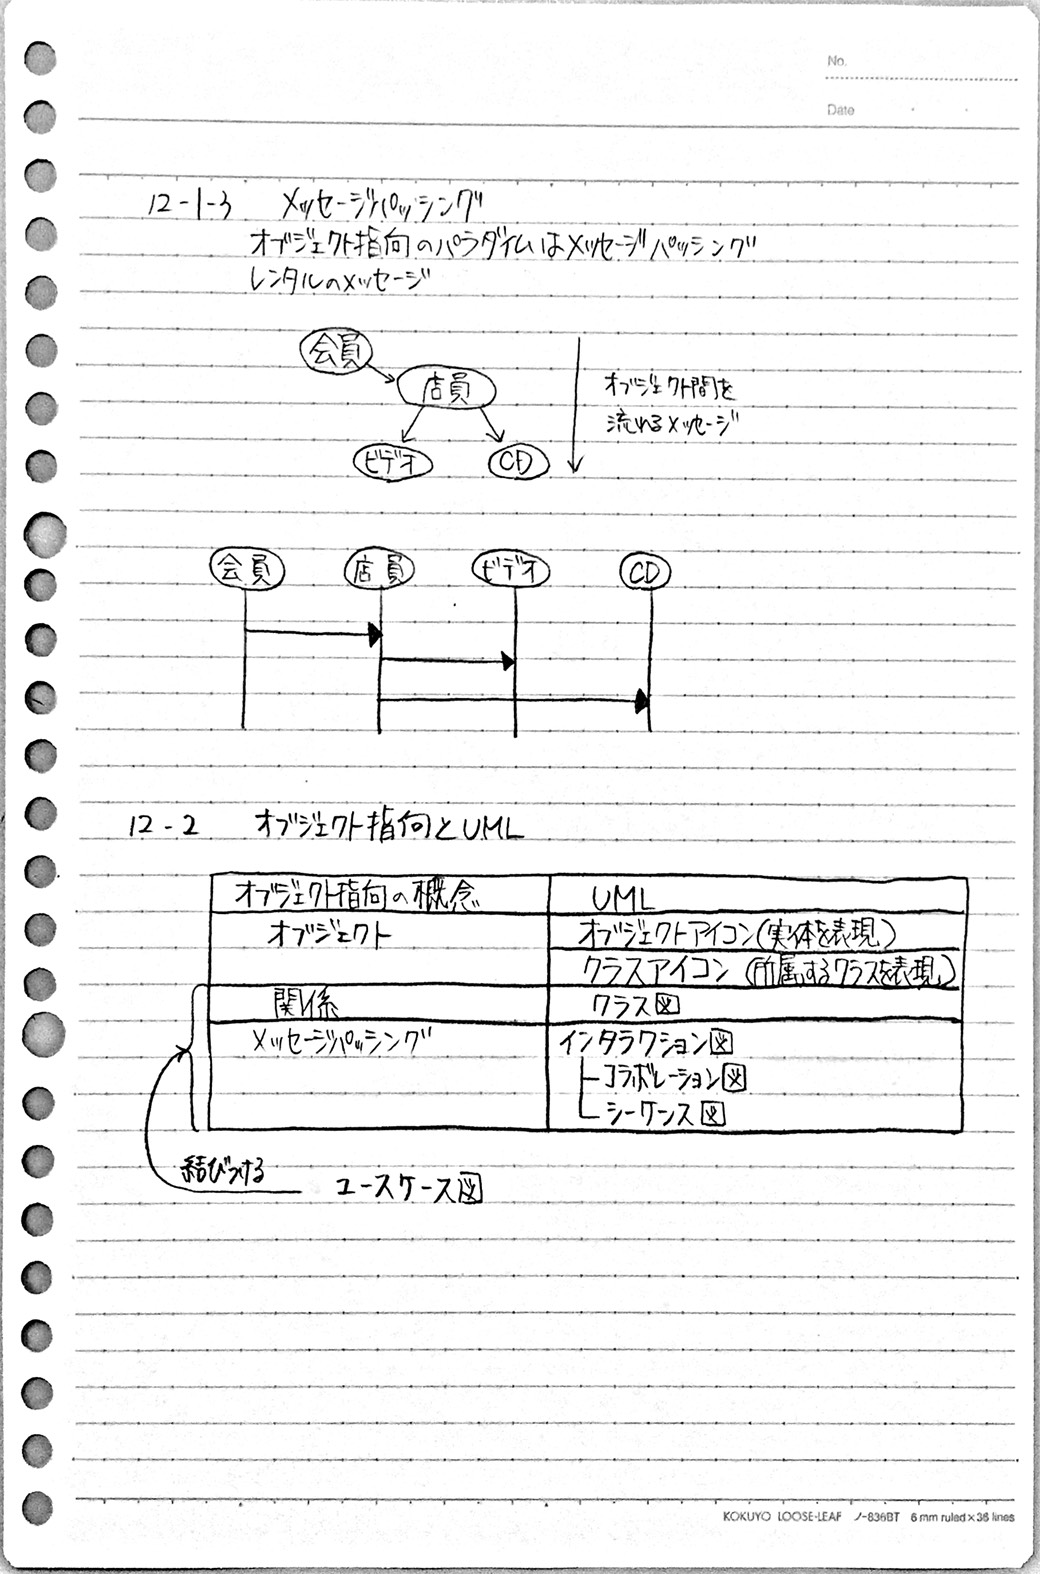 No.
Date
12-1-3 メッセージパッシング
オブジェクト指向のパラダイムはメッセージパッシング
レンタルのメッセージ
会員
店員
ビデオ
CD
オブジェクト間を
流れるメッセージ
会員 店員 ビデオ CD
12-2 オブジェクト指向とUML
オブジェクト指向の概念 UML
オブジェクト オブジェクトアイコン(実体を表現)
クラスアイコン(所属するクラスを表現)
関係 クラス図
メッセージパッシング インタラクション図
コラボレーション図
シーケンス図
結びつける ユースケース図
KOKUYO LOOSE-LEAF ノ-836BT 6 mm ruled×36 lines